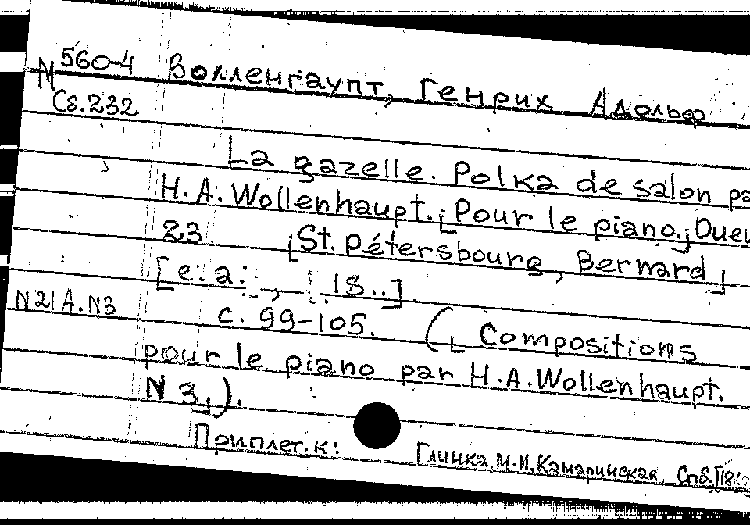 N 560-4 Волленгаупт, Генрих Адольф
Сб.232
La gazelle. Polka de salon pa
H.A. Wollenhaupt. [Pour le piano.] Oeu
23 [St. Pétersbourg, Bernard]
[e. a., 18..]
N21A.N3 c. 99-105. ([Compositions
pour le piano par H.A. Wollenhaupt.
N 3.]).
Приплет. к: Глинка, М.И. Камаринская. Спб.